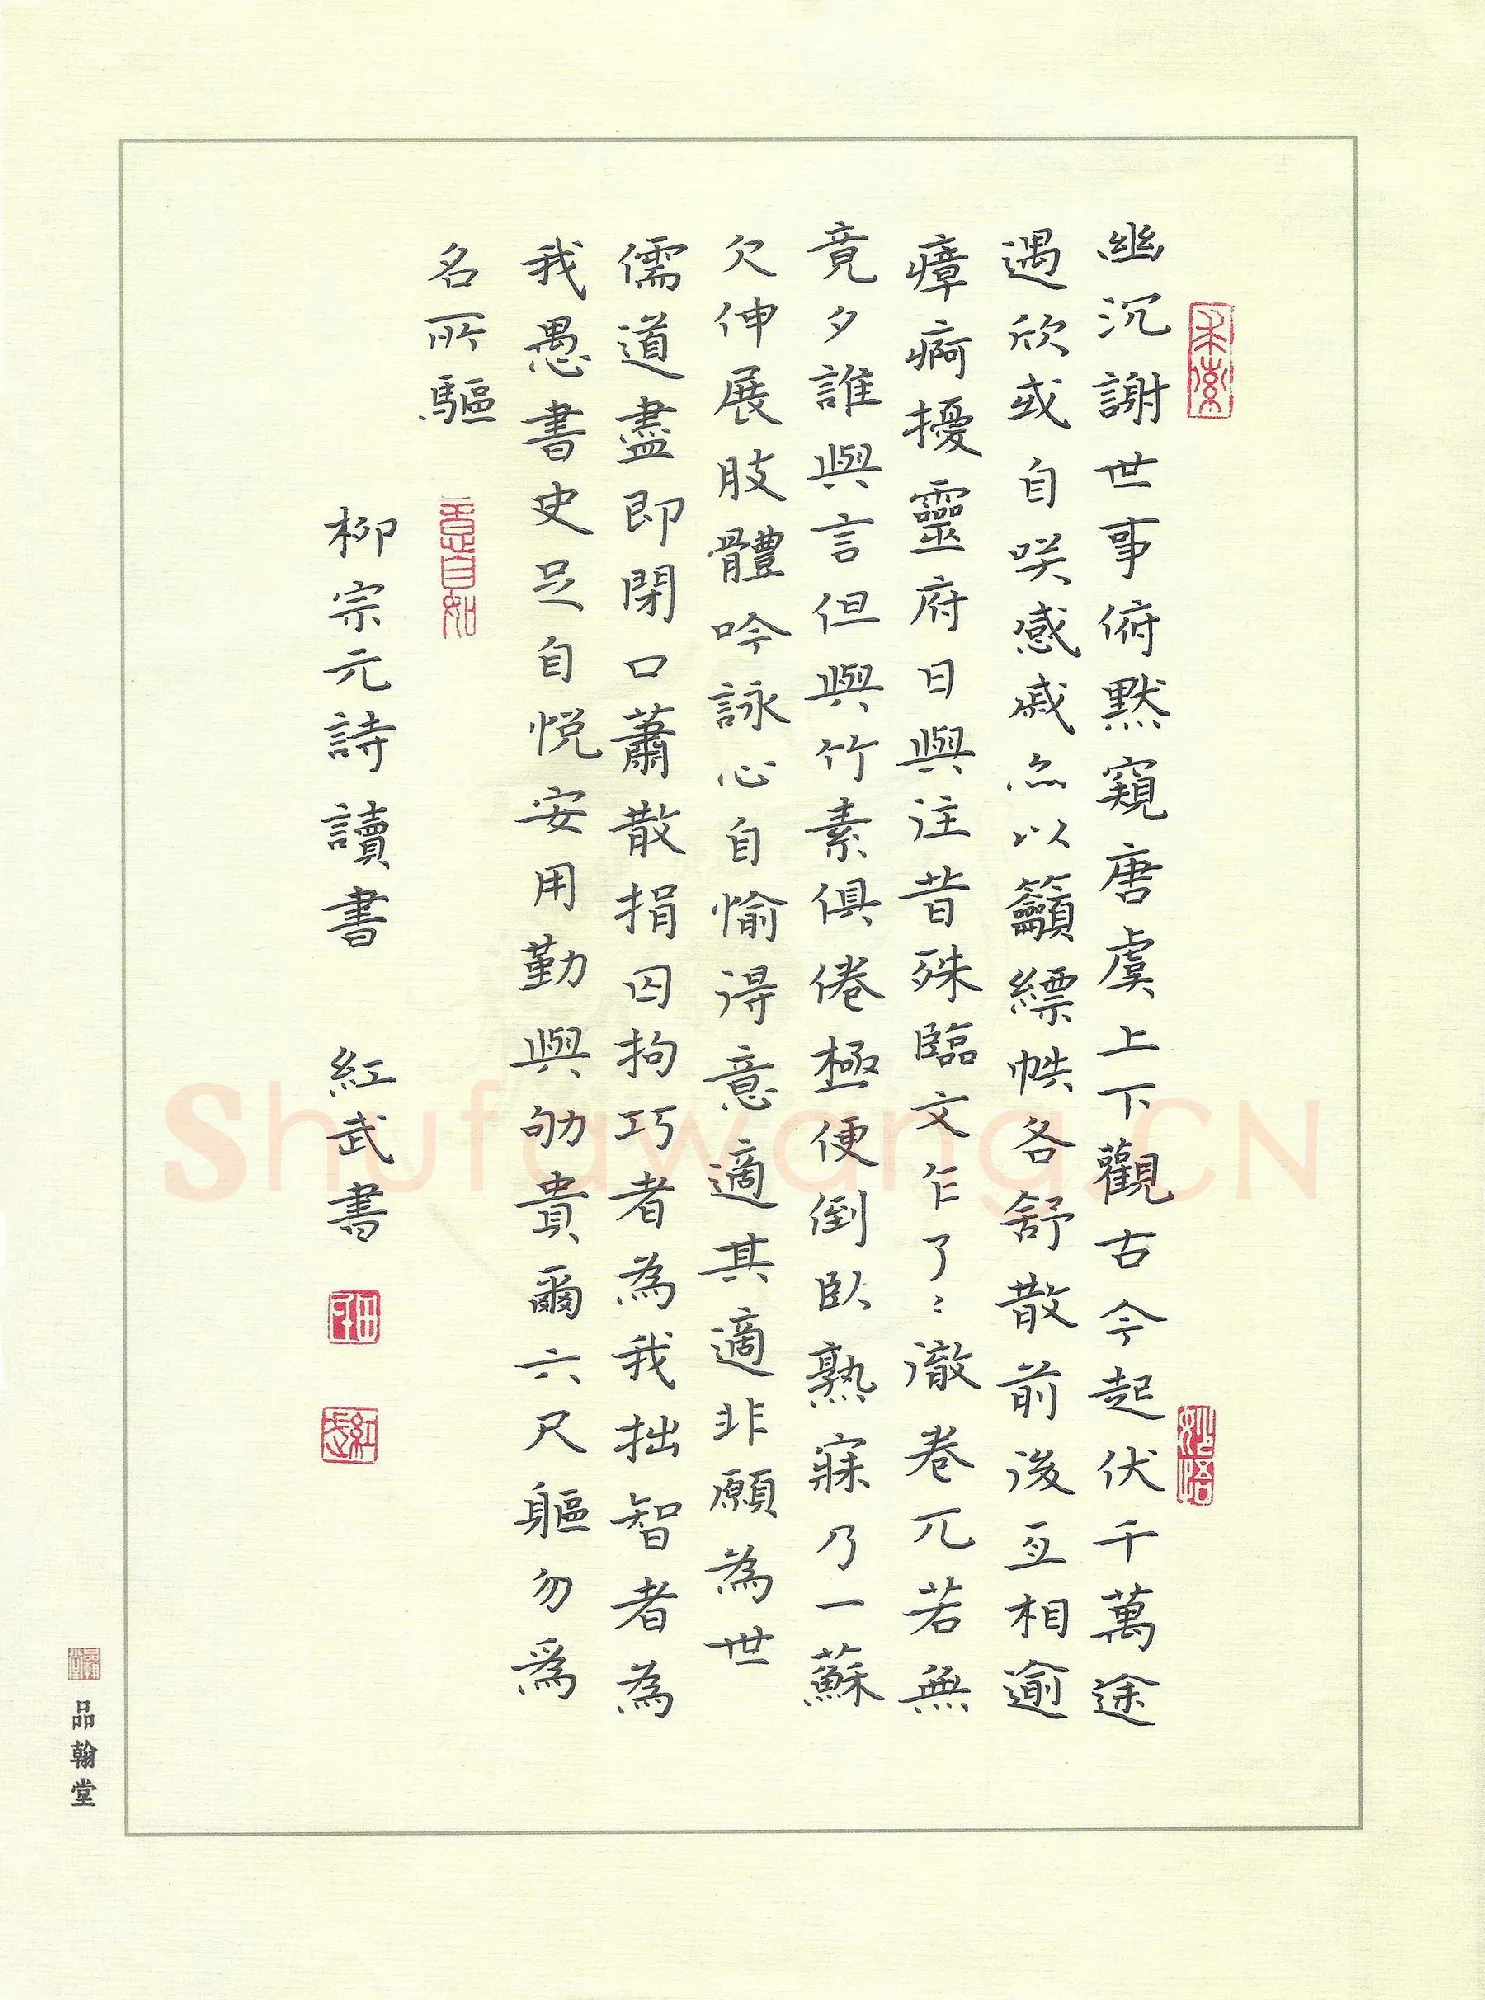 幽沉謝世事俯默窺唐虞上下觀古今起伏千萬途
遇欣或自咲感戚亦以籲縹帙各舒散前後互相逾
瘴痾擾靈府日與往昔殊臨文乍了〻徹卷兀若無
竟夕誰與言但與竹素俱倦極便倒臥熟寐乃一蘇
欠伸展肢體吟詠心自愉得意適其適非願為世
儒道盡即閉口蕭散捐囚拘巧者為我拙智者為
我愚書史足自悅安用勤與劬貴爾六尺軀勿爲
名所驅
柳宗元詩讀書 紅武書
紅武
品翰堂
Shufawang.CN